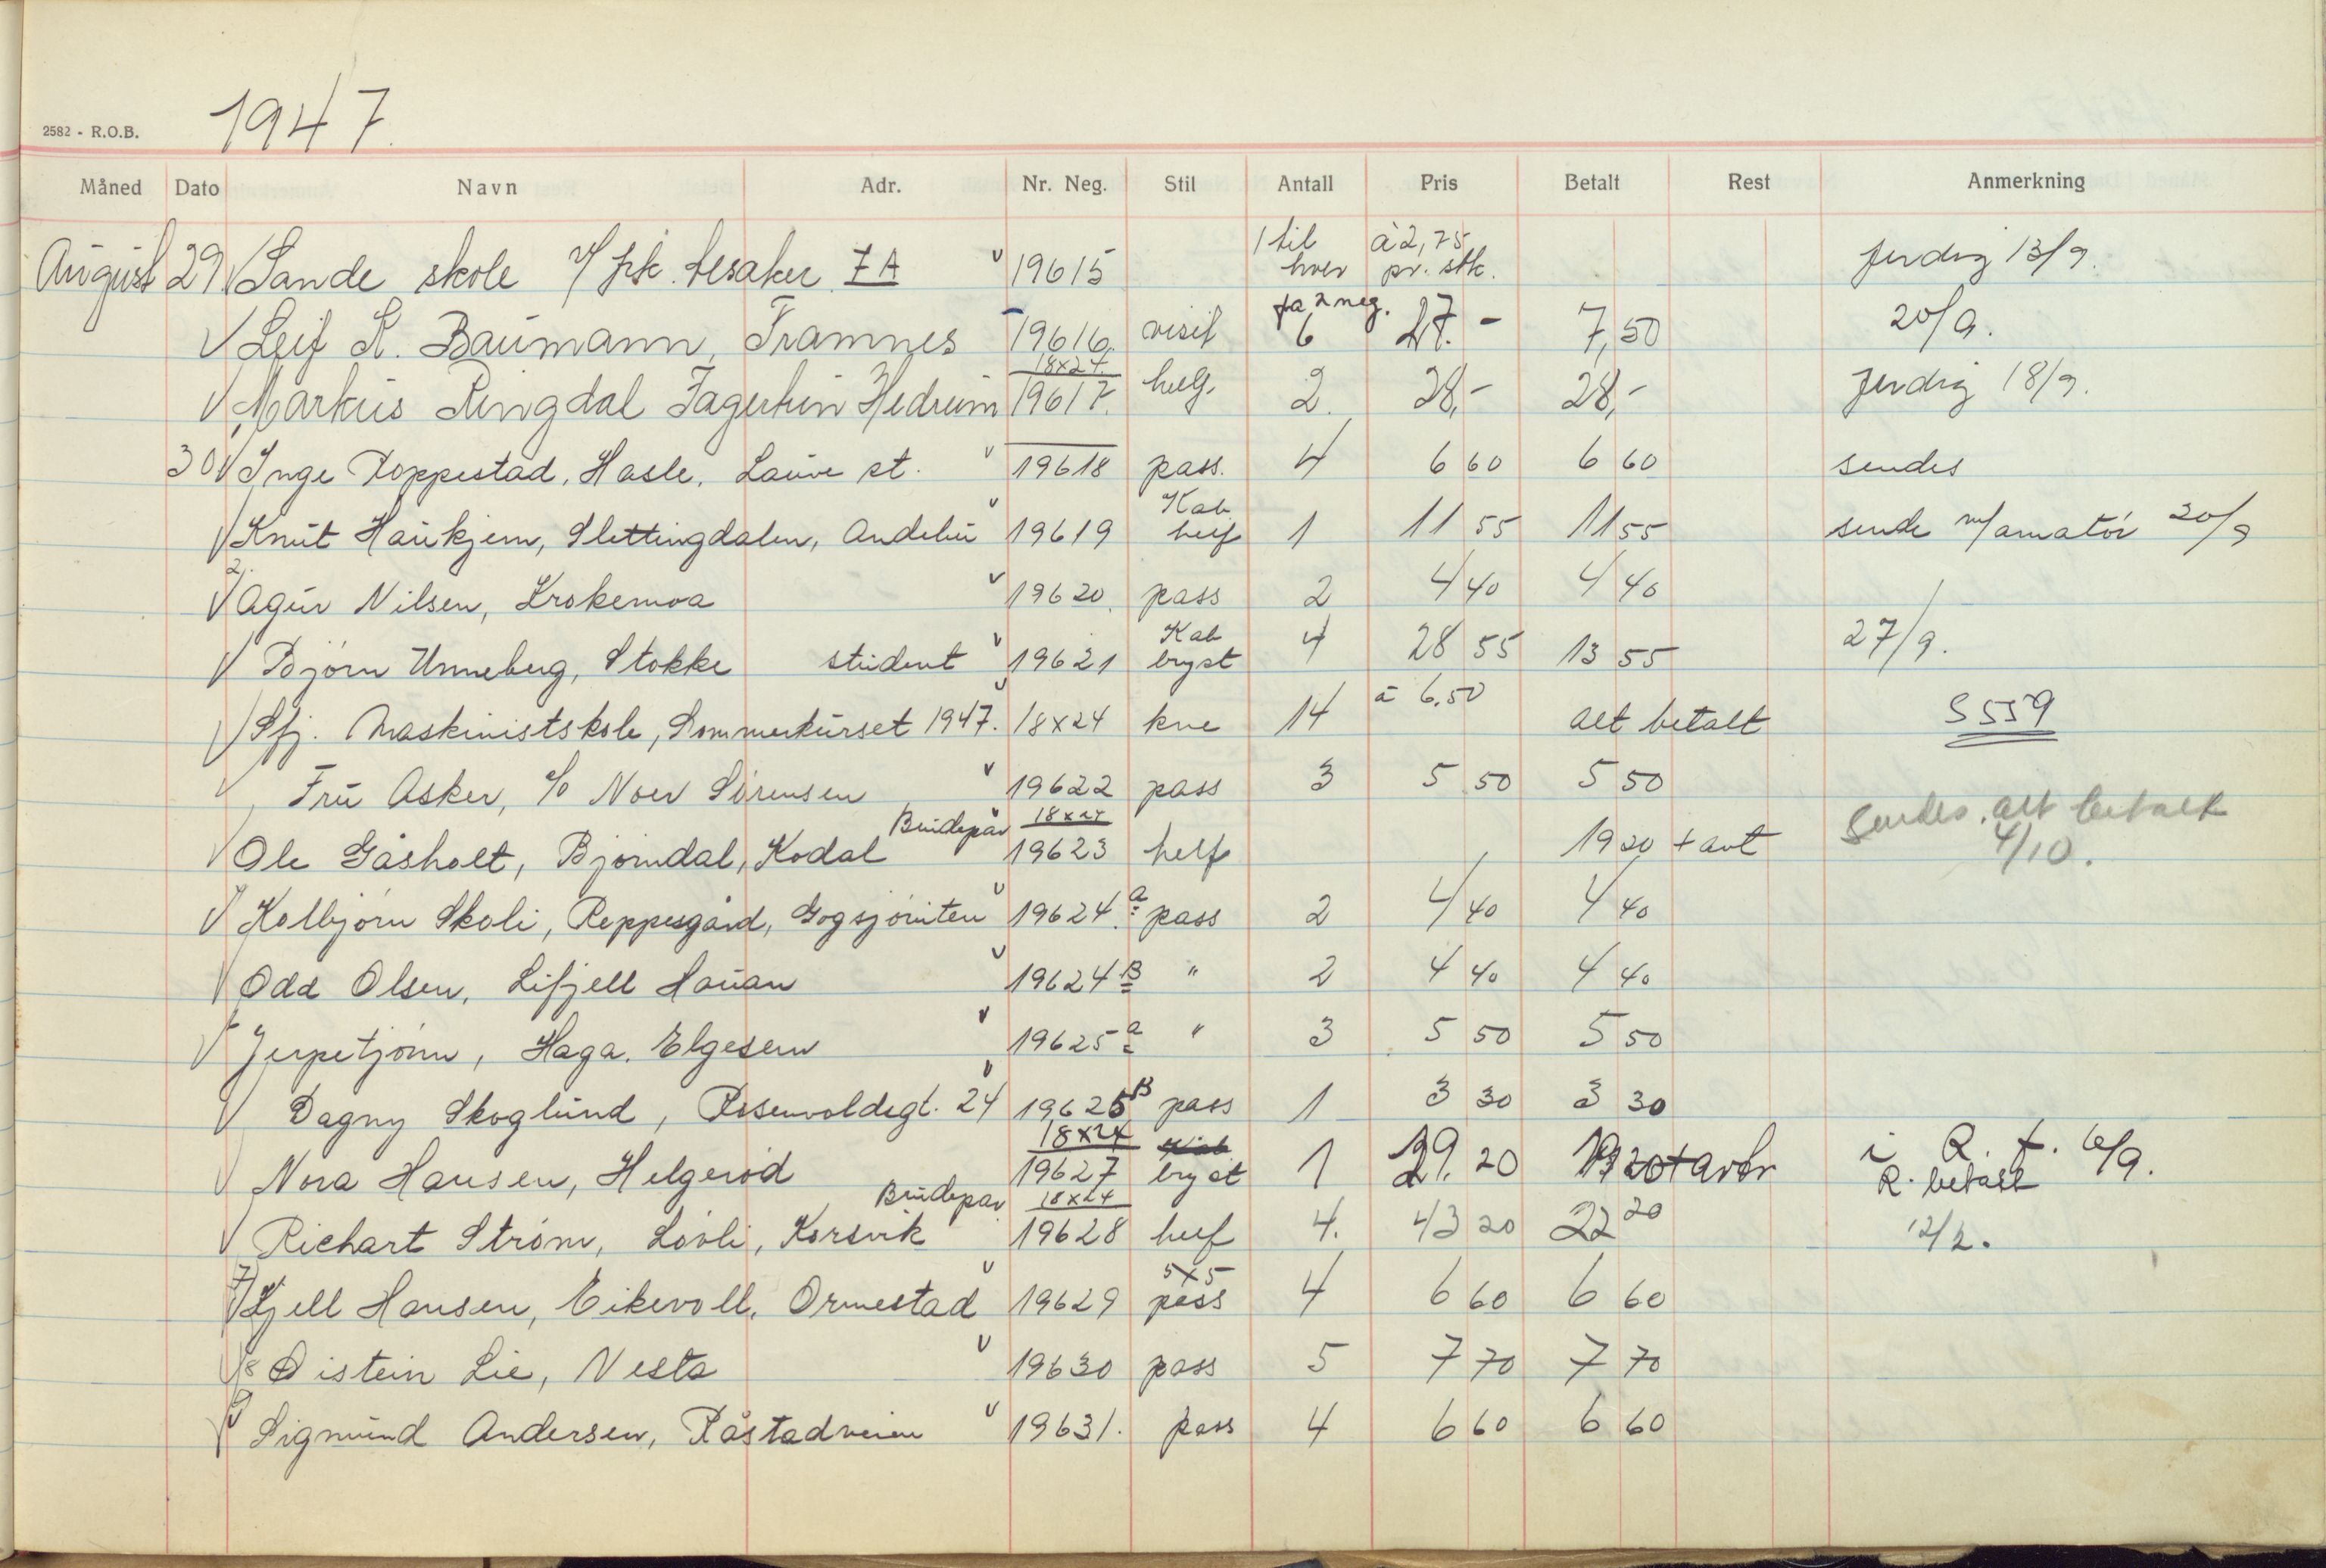 2582 - R.O.B. 1947.
Måned Dato Navn Adr. Nr. Neg. Stil Antall Pris Betalt Rest Anmerkning
August 29 Sande skole v/ frk. Lesaker 7A 19615 1 til hver à 2,75 pr. stk. ferdig 13/9.
Leif R. Baumann, Framnes 19616. visit fra 2 neg. 6 27.- 7,50 20/9.
Markus Ringdal Fagertun Hedrum 18x24 19617. helf. 2. 28,- 28,- ferdig 18/9.
30 Inge Roppestad, Hasle, Lauve st. 19618 pass. 4 6 60 6 60 sendes
Knut Haukjem, Slettingdalen, Andebu 19619 Kab helf 1 11 55 11 55 sende m/amatör 20/9
2. Agur Nilsen, Krokemoa 19620. pass 2 4 40 4 40
Björn Unneberg, Stokke student 19621 Kab bryst 4 28 55 13 55 27/9.
Sfj. Maskinistskole, Sommerkurset 1947. 18x24 kne 14 à 6,50 alt betalt S 559
Fru Asker, c/o Noer Sörensen 19622 pass 3 5 50 5 50
Ole Gåsholt, Björndal, Kodal Brudepar 18x24 19623 helf 19 20 + avt sendes. alt betalt 4/10.
Kolbjörn Skoli, Reppesgård, Gogsjöruten 19624.a pass 2 4 40 4 40
Odd Olsen, Lifjell Hauan 19624 B " 2 4 40 4 40
Jerpetjönn, Haga. Elgesem 19625 a " 3 5 50 5 50
Dagny Skoglund, Rosenvoldsgt. 24 19625 B pass 1 3 30 3 30
Nora Hansen, Helgeröd 18x24 19627 Kab bryst 1 29. 20 19 20 + avbr i R. f. 6/9. R. betalt
Richart Ström, Lövli, Korsvik Brudepar 18x24 19628 helf 4. 43 20 22 20 12/2.
7 Kjell Hansen, Eikevoll, Ormestad 19629 5x5 pass 4 6 60 6 60
8 Öistein Lie, Nesta 19630 pass 5 7 70 7 70
9 Sigmund Andersen, Råstadveien 19631. pass 4 6 60 6 60